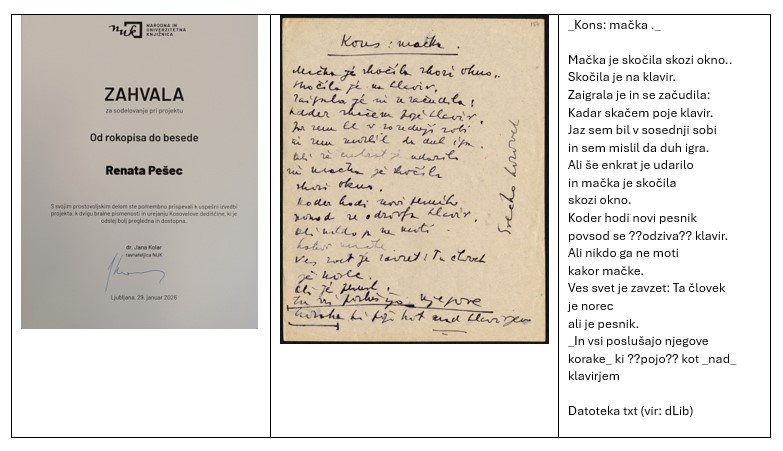 nuk
NARODNA IN
UNIVERZITETNA
KNJIŽNICA
ZAHVALA
za sodelovanje pri projektu
Od rokopisa do besede
Renata Pešec
S svojim prostovoljskim delom ste pomembno prispevali k uspešni izvedbi
projekta, k dvigu bralne pismenosti in urejanju Kosovelove dediščine, ki je
odslej bolj pregledna in dostopna.
dr. Jana Kolar
ravnateljica NUK
Ljubljana, 29. januar 2026
Kons: mačka.
Mačka je skočila skozi okno..
Skočila je na klavir.
Zaigrala je in se začudila:
Kadar skačem poje klavir.
Jaz sem bil v sosednji sobi
in sem mislil da duh igra.
Ali še enkrat je udarilo
in mačka je skočila
skozi okno.
Koder hodi novi pesnik
povsod se klavir.
Ali nikdo ga ne moti
kakor mačke.
Ves svet je zavzet: Ta človek
je norec
ali je pesnik.
In vsi poslušajo njegove
korake ki kot nad klavirjem
Srečko Kosovel
_Kons: mačka ._
Mačka je skočila skozi okno..
Skočila je na klavir.
Zaigrala je in se začudila:
Kadar skačem poje klavir.
Jaz sem bil v sosednji sobi
in sem mislil da duh igra.
Ali še enkrat je udarilo
in mačka je skočila
skozi okno.
Koder hodi novi pesnik
povsod se ??odziva?? klavir.
Ali nikdo ga ne moti
kakor mačke.
Ves svet je zavzet: Ta človek
je norec
ali je pesnik.
_In vsi poslušajo njegove
korake_ ki ??pojo?? kot _nad_
klavirjem
Datoteka txt (vir: dLib)